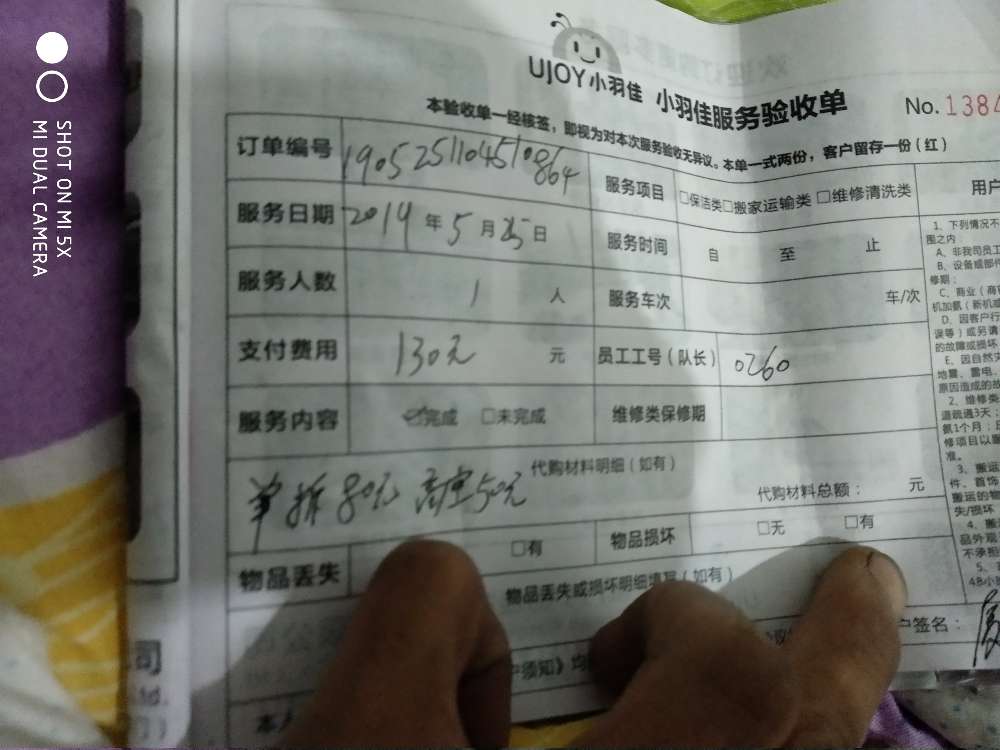 UJOY小羽佳 小羽佳服务验收单
No. 1384
本验收单一经核签，即视为对本次服务验收无异议。本单一式两份，客户留存一份（红）
订单编号 1905251104510864 服务项目 □保洁类□搬家运输类 □维修清洗类
服务日期 2019 年 5 月 25 日 服务时间 自 至 止
服务人数 1 人 服务车次 车/次
支付费用 130元 元 员工工号（队长） 0260
服务内容 ☑完成 □未完成 维修类保修期
代购材料明细（如有）
单拆80元 高空50元
代购材料总额： 元
物品丢失 □有 物品损坏 □无 □有
物品丢失或损坏明细填写（如有）
户签名：
户须知》均
本人
用户
1、下列情况不
围之内：
A、非我司员工
B、设备或部件
修期；
C、商业（商
机加氨（新机或
D、因客户行
误等）或另请
的故障或损坏
E、因自然灾
地震、雷电、
原因造成的故
2、维修类
道疏通3天；
氨1个月；
修项目以
准。
3、搬运
件、首饰
搬运的物
失/损坏
4、搬
品外观
不承担
5、
48小
司
Ltd.
SHOT ON MI 5X
MI DUAL CAMERA